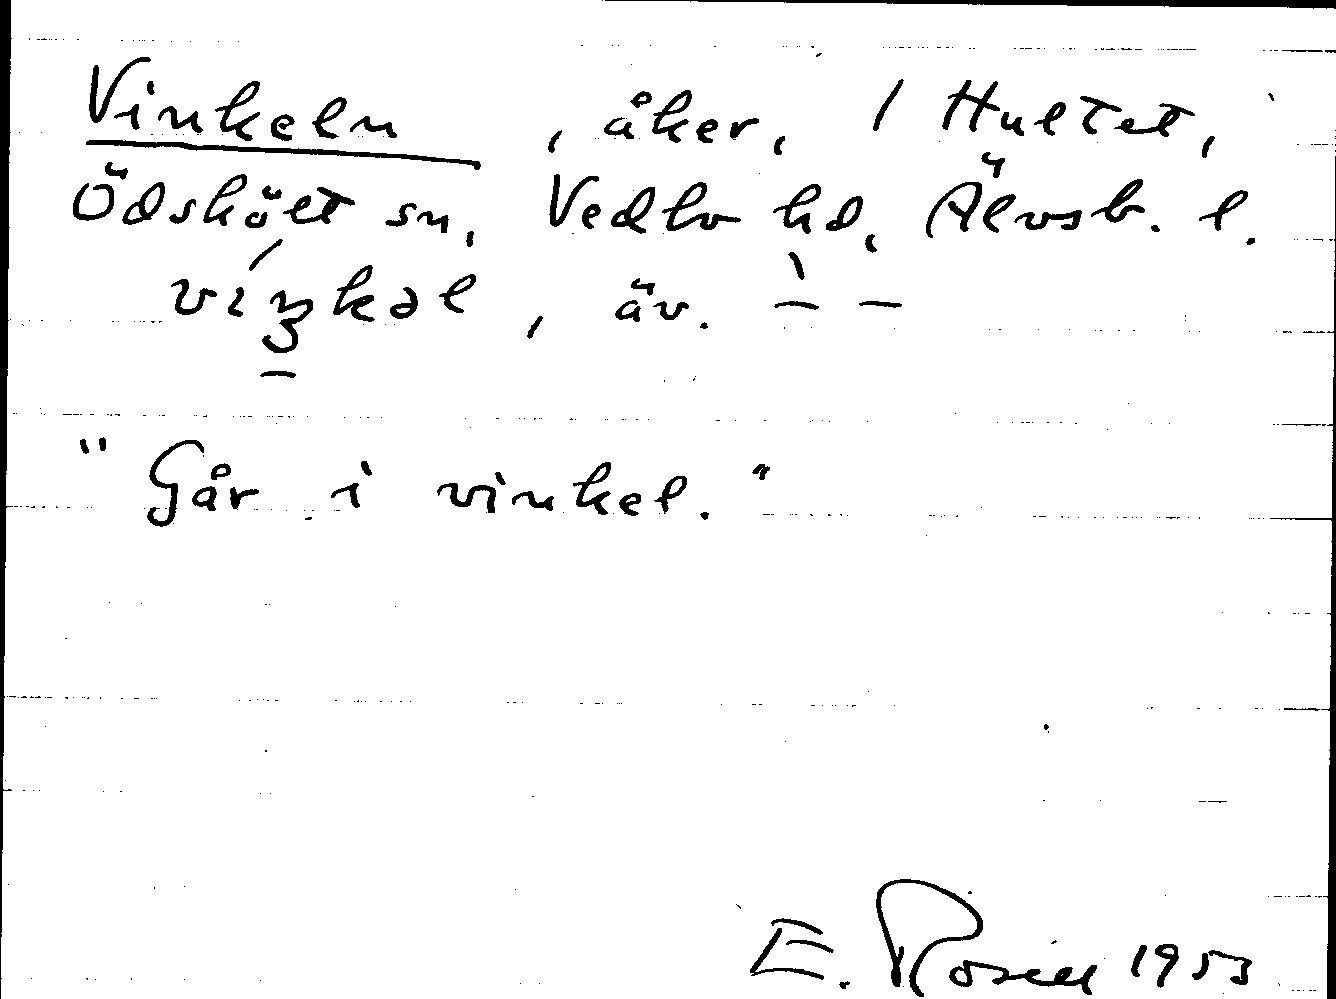 Vinkeln, åker, / Hultet,
ÖdsköLt sn, Vedbo hd, Älvsb. l.
víŋkəl, äv. ̀– –
"Går i vinkel."
E. Rosell 1953